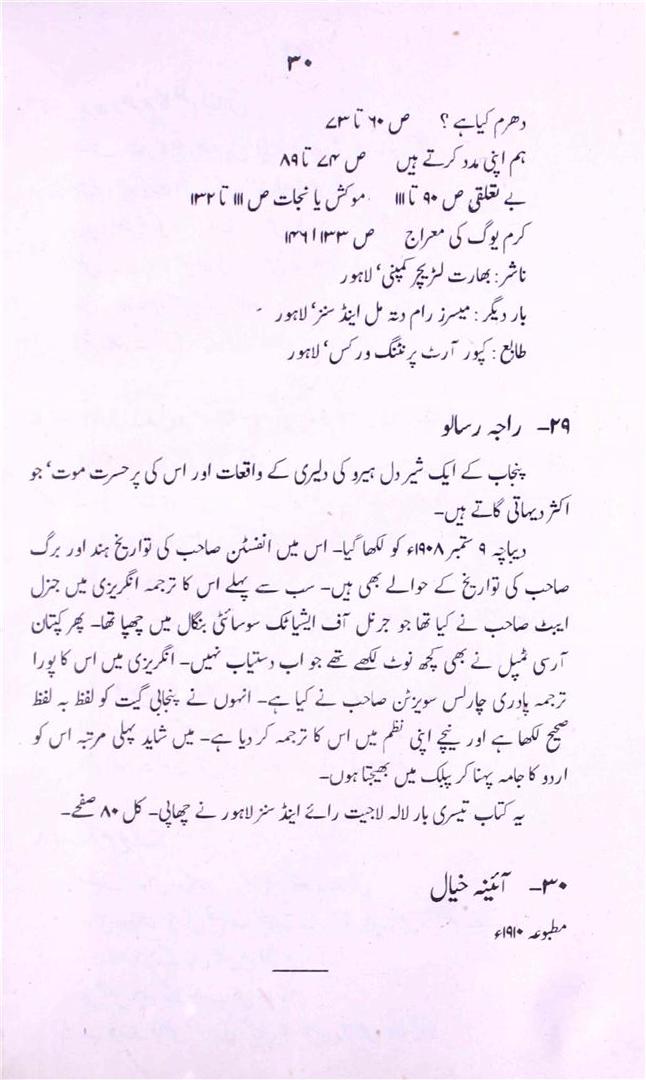 ۳۰
دھرم کیا ہے ؟ ص ۶۰ تا ۷۳
ہم اپنی مدد کرتے ہیں ص ۷۴ تا ۸۹
بے تعلقی ص ۹۰ تا ۱۱۱ موکش یا نجات ص ۱۱۱ تا ۱۳۲
کرم یوگ کی معراج ص ۱۳۳ ا ۱۴۶
ناشر : بھارت لٹریچر کمپنی‘ لاہور
بار دیگر : میسرز رام دتہ مل اینڈ سنز‘ لاہور ۔
طابع : کپور آرٹ پرنٹنگ ورکس‘ لاہور
۲۹۔ راجہ رسالو
پنجاب کے ایک شیر دل ہیرو کی دلیری کے واقعات اور اس کی پر حسرت موت‘ جو
اکثر دیہاتی گاتے ہیں۔
دیباچہ ۹ ستمبر ۱۹۰۸ء کو لکھا گیا۔ اس میں انفسٹن صاحب کی تواریخ ہند اور برگ
صاحب کی تواریخ کے حوالے بھی ہیں۔ سب سے پہلے اس کا ترجمہ انگریزی میں جنرل
ایبٹ صاحب نے کیا تھا جو جرنل آف ایشیاٹک سوسائٹی بنگال میں چھپا تھا۔ پھر کپتان
آر سی ٹمپل نے بھی کچھ نوٹ لکھے تھے جو اب دستیاب نہیں۔ انگریزی میں اس کا پورا
ترجمہ پادری چارلس سویزٹن صاحب نے کیا ہے۔ انہوں نے پنجابی گیت کو لفظ بہ لفظ
صحیح لکھا ہے اور نیچے اپنی نظم میں اس کا ترجمہ کر دیا ہے۔ میں شاید پہلی مرتبہ اس کو
اردو کا جامہ پہنا کر پبلک میں بھیجتا ہوں۔
یہ کتاب تیسری بار لالہ لاجپت رائے اینڈ سنز لاہور نے چھاپی۔ کل ۸۰ صفحے۔
۳۰۔ آئینہ خیال
مطبوعہ ۱۹۱۰ء